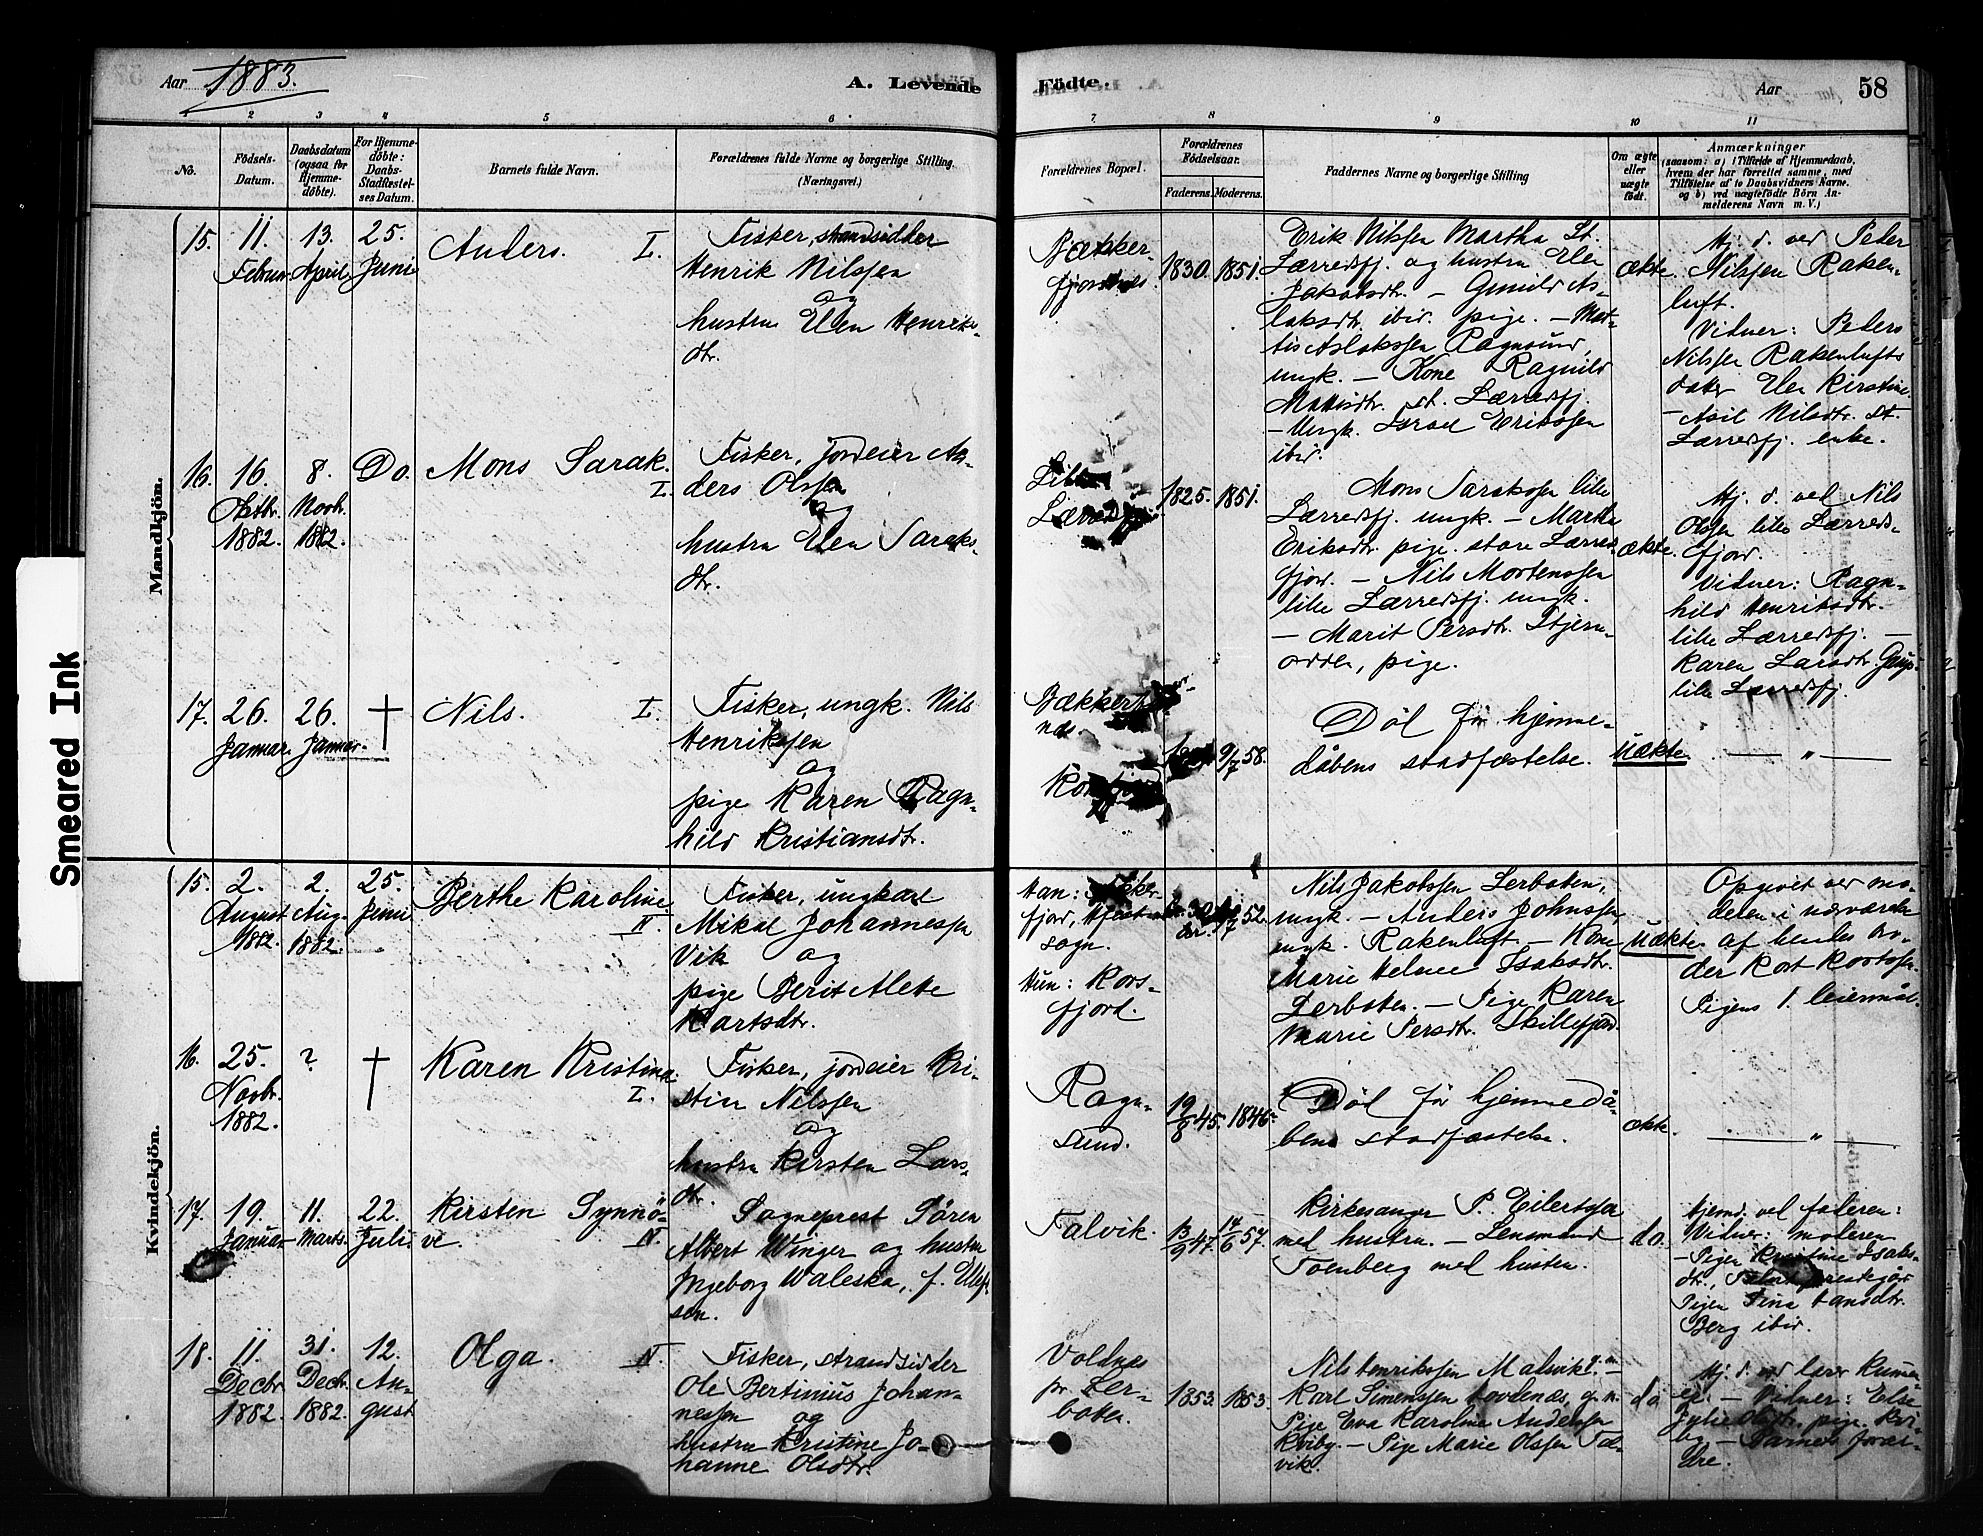 Aar 1883.
A. Levende
Födte.
Aar
58
2 3 4 5 6 7 8 9 10 11
No.
Födsels-
Datum.
Daabsdatum
(ogsaa for
Hjemme-
döbte).
For Hjemme-
döbte:
Daabs-
Stadfæstel-
ses Datum.
Barnets fulde Navn.
Forældrenes fulde Navne og borgerlige Stilling.
(Næringsvei.)
Forældrenes Bopæl.
Forældrenes
Födselsaar.
Faderens.
Moderens.
Faddernes Navne og borgerlige Stilling
Om ægte
eller
uægte
födt.
Anmærkninger
(saasom: a) i Tilfælde af Hjemmedaab,
hvem der har forrettet samme, med
Tilföielse af to Daabsvidners Navne.
og b) ved uægtefödte Börn An-
melderens Navn m. V.)
Mandkjön.
15.
11.
Februar
13.
April
25.
Juni
Anders. I.
Fisker, strandsidder
Henrik Nilssen
og
hustru Elen Henriks-
dtr.
Bækker-
fjordnes.
1830.
1851.
Erik Nilssen Martha St.
Lærredsfj. og hustru Elen
Jakobsdtr. – Gunild As-
laksdtr. ibid. pige. – Mat-
tis Aslakssen Ragnsund,
ungk. – Kone Ragnild
Mattisdtr. st. Lærredsfj.
– Ungk. Israel Erikssen
ibid.
ækte.
Hj. d. ved Peder
Nilssen Raken-
luft.
Vidner: Peders
Nilssen Rakenlufts
datter Elen Kirstine.
– Asil Nilsdtr. st.
Lærredsfj. enke.
16.
16.
Oktbr.
1882.
8.
Novbr.
1882.
Do.
Mons Sarak.
I.
Fisker, jordeier An-
ders Olssen
og
hustru Elen Saraks-
dtr.
Lille
Lærredsfj.
1825.
1851.
Mons Sarakssen lille
Lærredsfj. ungk. – Martha
Eriksdtr. pige. store Lærreds-
fjord. – Nils Mortenssen
lille Lærredsfj. ungk.
– Marit Persdtr. Stjern-
odden, pige.
ækte.
Hj. d. ved Nils
Olssen lille Lærreds-
fjord.
Vidner: Ragn-
hild Henriksdtr.
lille Lærredsfj. –
Karen Larsdtr. Gaup
lille Lærredsfj.
17.
26.
Januar.
26.
Januar.
†
Nils. I.
Fisker, ungk. Nils
Henrikssen
og
pige Karen Ragn-
hild Kristiansdtr.
Bækkerf
nes.
9/7 58.
Död för hjemme-
dåbens stadfæstelse.
Uækte.
— „ —
Kvindekjön.
15.
2.
August
1882.
2.
Aug.
1882.
25.
Juni
Berthe Karoline
N.
Fisker, ungkarl
Mikal Johannessen
Vik og
pige Berit Alete
Kortsdtr.
Han:
fjord,
sogn.
Hun: Kors-
fjord.
52.
Nils Jakobssen Lerboten,
ungk. – Anders Johnssen,
ungk. Rakenluft. – Kone
Marie Helene Isaksdtr.
Lerboten. – Pige Karen
Marie Persdtr. Skillefjord.
Uækte
Opgivet ved mo-
deren i nærværelse
af hendes bro-
der Kort Kortssen.
Pigens 1. leiermål.
16.
25.
Novbr.
1882.
?
†
Karen Kristina.
I.
Fisker, jordeier Kri-
stian Nilssen
og
hustru Kirsten Lars-
dtr.
Ragn-
sund.
19/8 45.
1846.
Död för hjemmedå-
bens stadfæstelse.
ækte.
— „ —
17.
19.
Januar
11.
Marts.
22.
Juli.
Kirsten Synnö-
ve. N.
Sogneprest Sören
Albert Winger og hustru
Ingeborg Waleska, f. Ellef-
sen.
Talvik.
13/9 47.
14/6 57.
Kirkesanger P. Eilertssen
med hustru. – Lensmand
Toenberg med hustru.
do.
hjemd. ved faderen:
Vidner: moderen
– Pigen Kristine Isaks-
dtr. Talvik prestegård
Pigen Tina Hansdtr.
Berg ibid.
18.
11.
Decbr.
1882.
31.
Decbr.
1882.
12.
Au-
gust
Olga. N.
Fisker, strandsidder
Ole Bertinius Johan-
nessen og
hustru Kristine Jo-
hanne Olsdtr.
Voldnes
pr. Ler-
boten.
1853.
1853.
Nils Henrikssen Malvik g.m.
Karl Simenssen Hovdenæs, g.m.
Pige Eva Karoline Andersen
Kviby. – Pige Marie Olssen Tal-
vik.
do
Hj. d. ved
– Vidner: Else
Julie Olsdtr. pige. Kvi-
by – Barnets foræl-
dre.
Smeared Ink